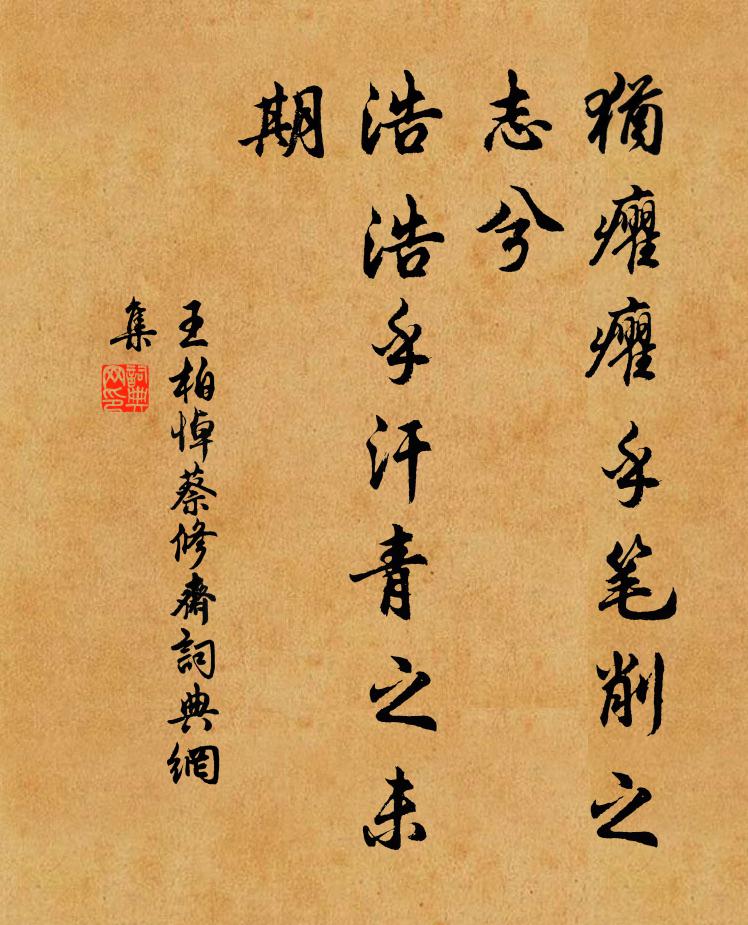 猶癯癯乎笔削之
志兮
浩浩乎汗青之未
期
王柏悼蔡修齋詞典網
集
詞典
网印